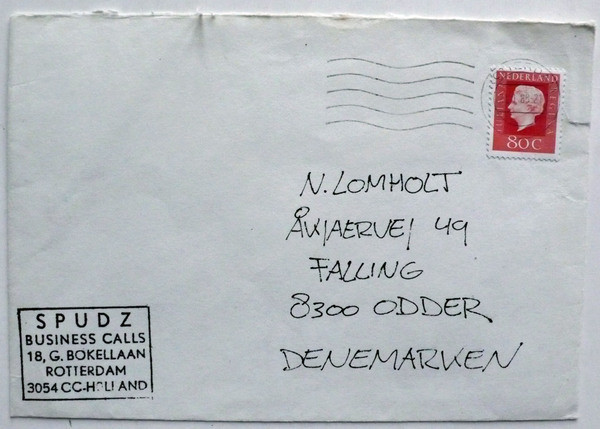 NEDERLAND
80C
N. LOMHOLT
ÅVJAERVEJ 49
FALLING
8300 ODDER
DENEMARKEN
SPUDZ
BUSINESS CALLS
18, G. BOKELLAAN
ROTTERDAM
3054 CC-HOLLAND